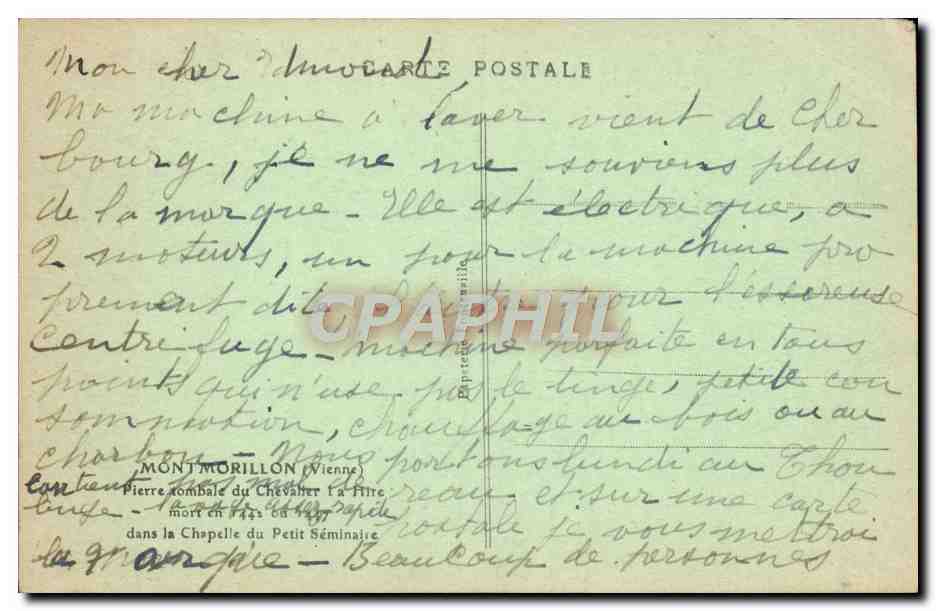 Mon cher
CARTE POSTALE
Ma machine à laver vient de Cher
bourg, je ne me souviens plus
de la marque - Elle est électrique, a
2 moteurs, un pour la machine pro
prement dite, l'autre pour l'essoreuse
centrifuge - machine parfaite en tous
points qui n'use pas le linge, petite con
sommation, chauffage au bois ou au
charbon - Nous partons lundi au Thou
reau et sur une carte
postale je vous mettrai
la marque - Beaucoup de personnes
contient pas mal de
linge - lavage assez rapide
MONTMORILLON (Vienne)
Pierre tombale du Chevalier La Hire
mort en 1442 ou
dans la Chapelle du Petit Séminaire
Papeterie
CPAPHIL